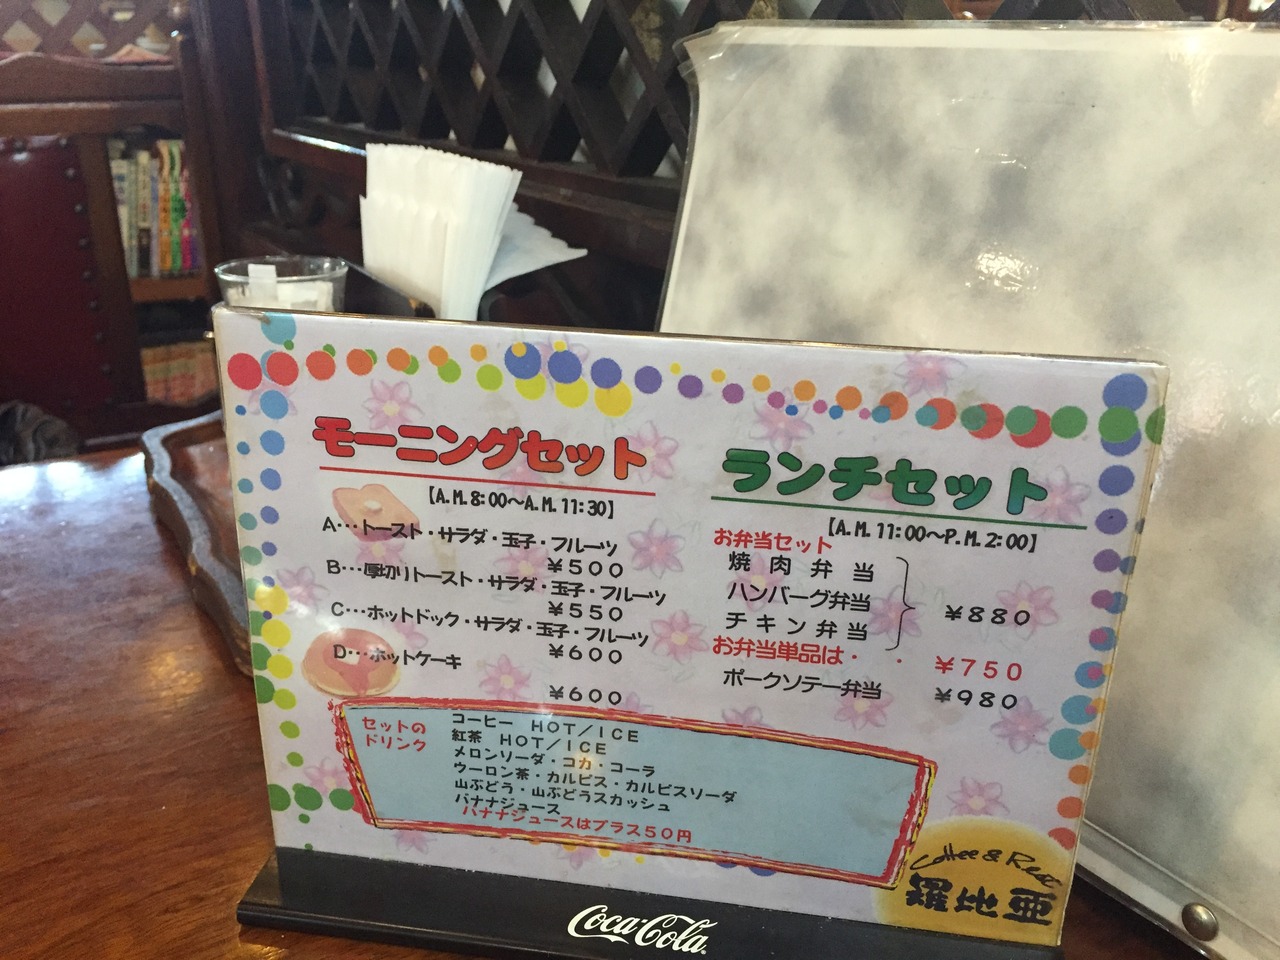 モーニングセット
【A.M.8:00～A.M.11:30】
A･･･トースト・サラダ・玉子・フルーツ
¥500
B･･･厚切りトースト・サラダ・玉子・フルーツ
¥550
C･･･ホットドック・サラダ・玉子・フルーツ
¥600
D･･･ホットケーキ
¥600
ランチセット
【A.M.11:00～P.M.2:00】
お弁当セット
焼肉弁当
ハンバーグ弁当
チキン弁当
¥880
お弁当単品は・・ ¥750
ポークソテー弁当 ¥980
セットの
ドリンク
コーヒー HOT/ICE
紅茶 HOT/ICE
メロンソーダ・コカ・コーラ
ウーロン茶・カルピス・カルピスソーダ
山ぶどう・山ぶどうスカッシュ
バナナジュース
バナナジュースはプラス50円
Coffee & Rest
羅比亜
Coca-Cola